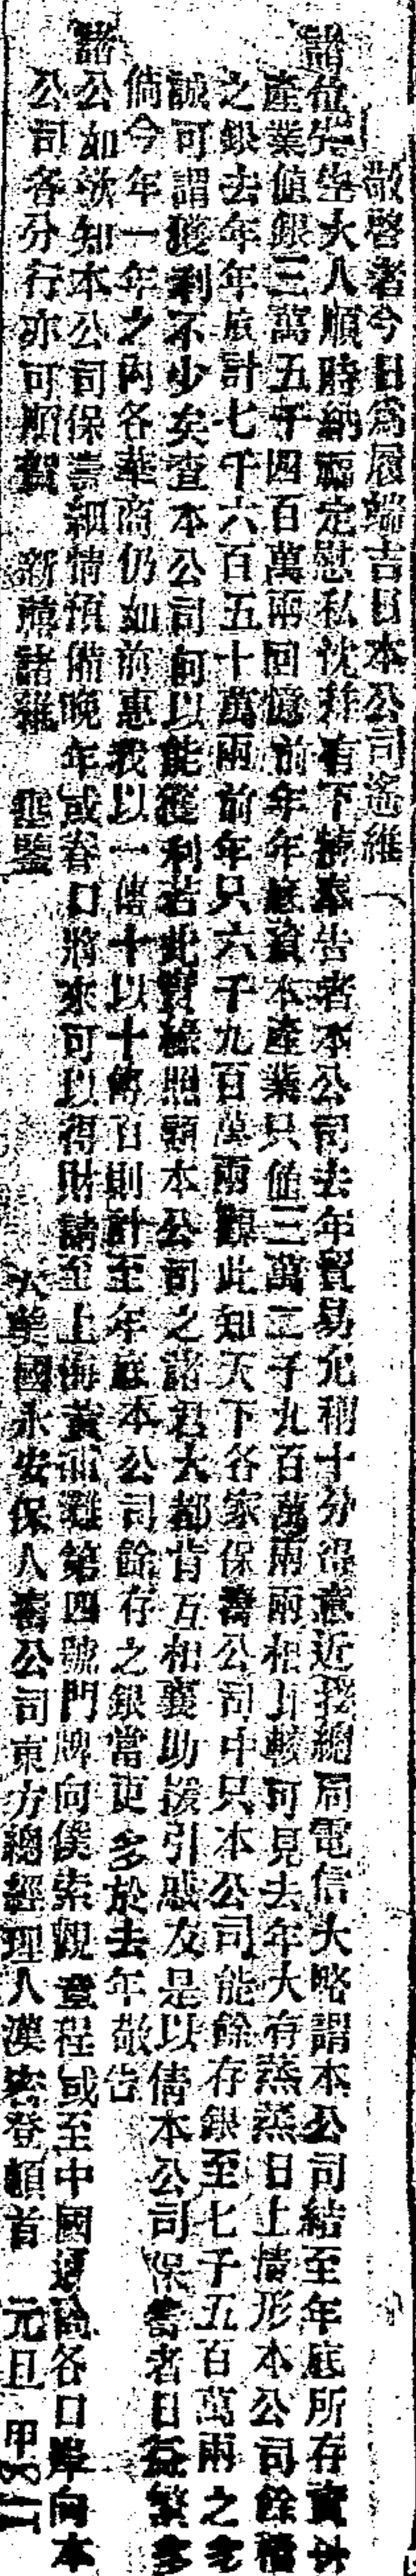 敬啓者今日爲履端吉日本公司遙維
諸位先生大人順時納福定慰私忱茲有下情奉告者本公司去年貿易尤稱十分得意近接總局電信大略謂本公司結至年底所存實共
產業値銀三萬五千四百萬兩回憶前年年底資本產業只値三萬二千九百萬兩兩相比較可見去年大有蒸蒸日上情形本公司餘積
之銀去年年底計七千六百五十萬兩前年只六千九百萬兩觀此知天下各家保壽公司中只本公司能餘存銀至七千五百萬兩之多
誠可謂獲利不少矣查本公司何以能獲利若此實緣照顧本公司之諸君大都肯互相襄助援引戚友是以倩本公司保壽者日益繁多
倘今年一年之內各華商仍如前惠我以一傳十以十傳百則計至年底本公司餘存之銀當更多於去年敬告
諸公如欲知本公司保壽細情預備晚年或春口將來可以得財請至上海黃浦灘第四號門牌向僕索觀章程或至中國通商各口岸向本
公司各分行亦可順賀　新禧諸維　垂鑒　大美國永安保人壽公司東方總經理人漢密登頓首　元旦　甲